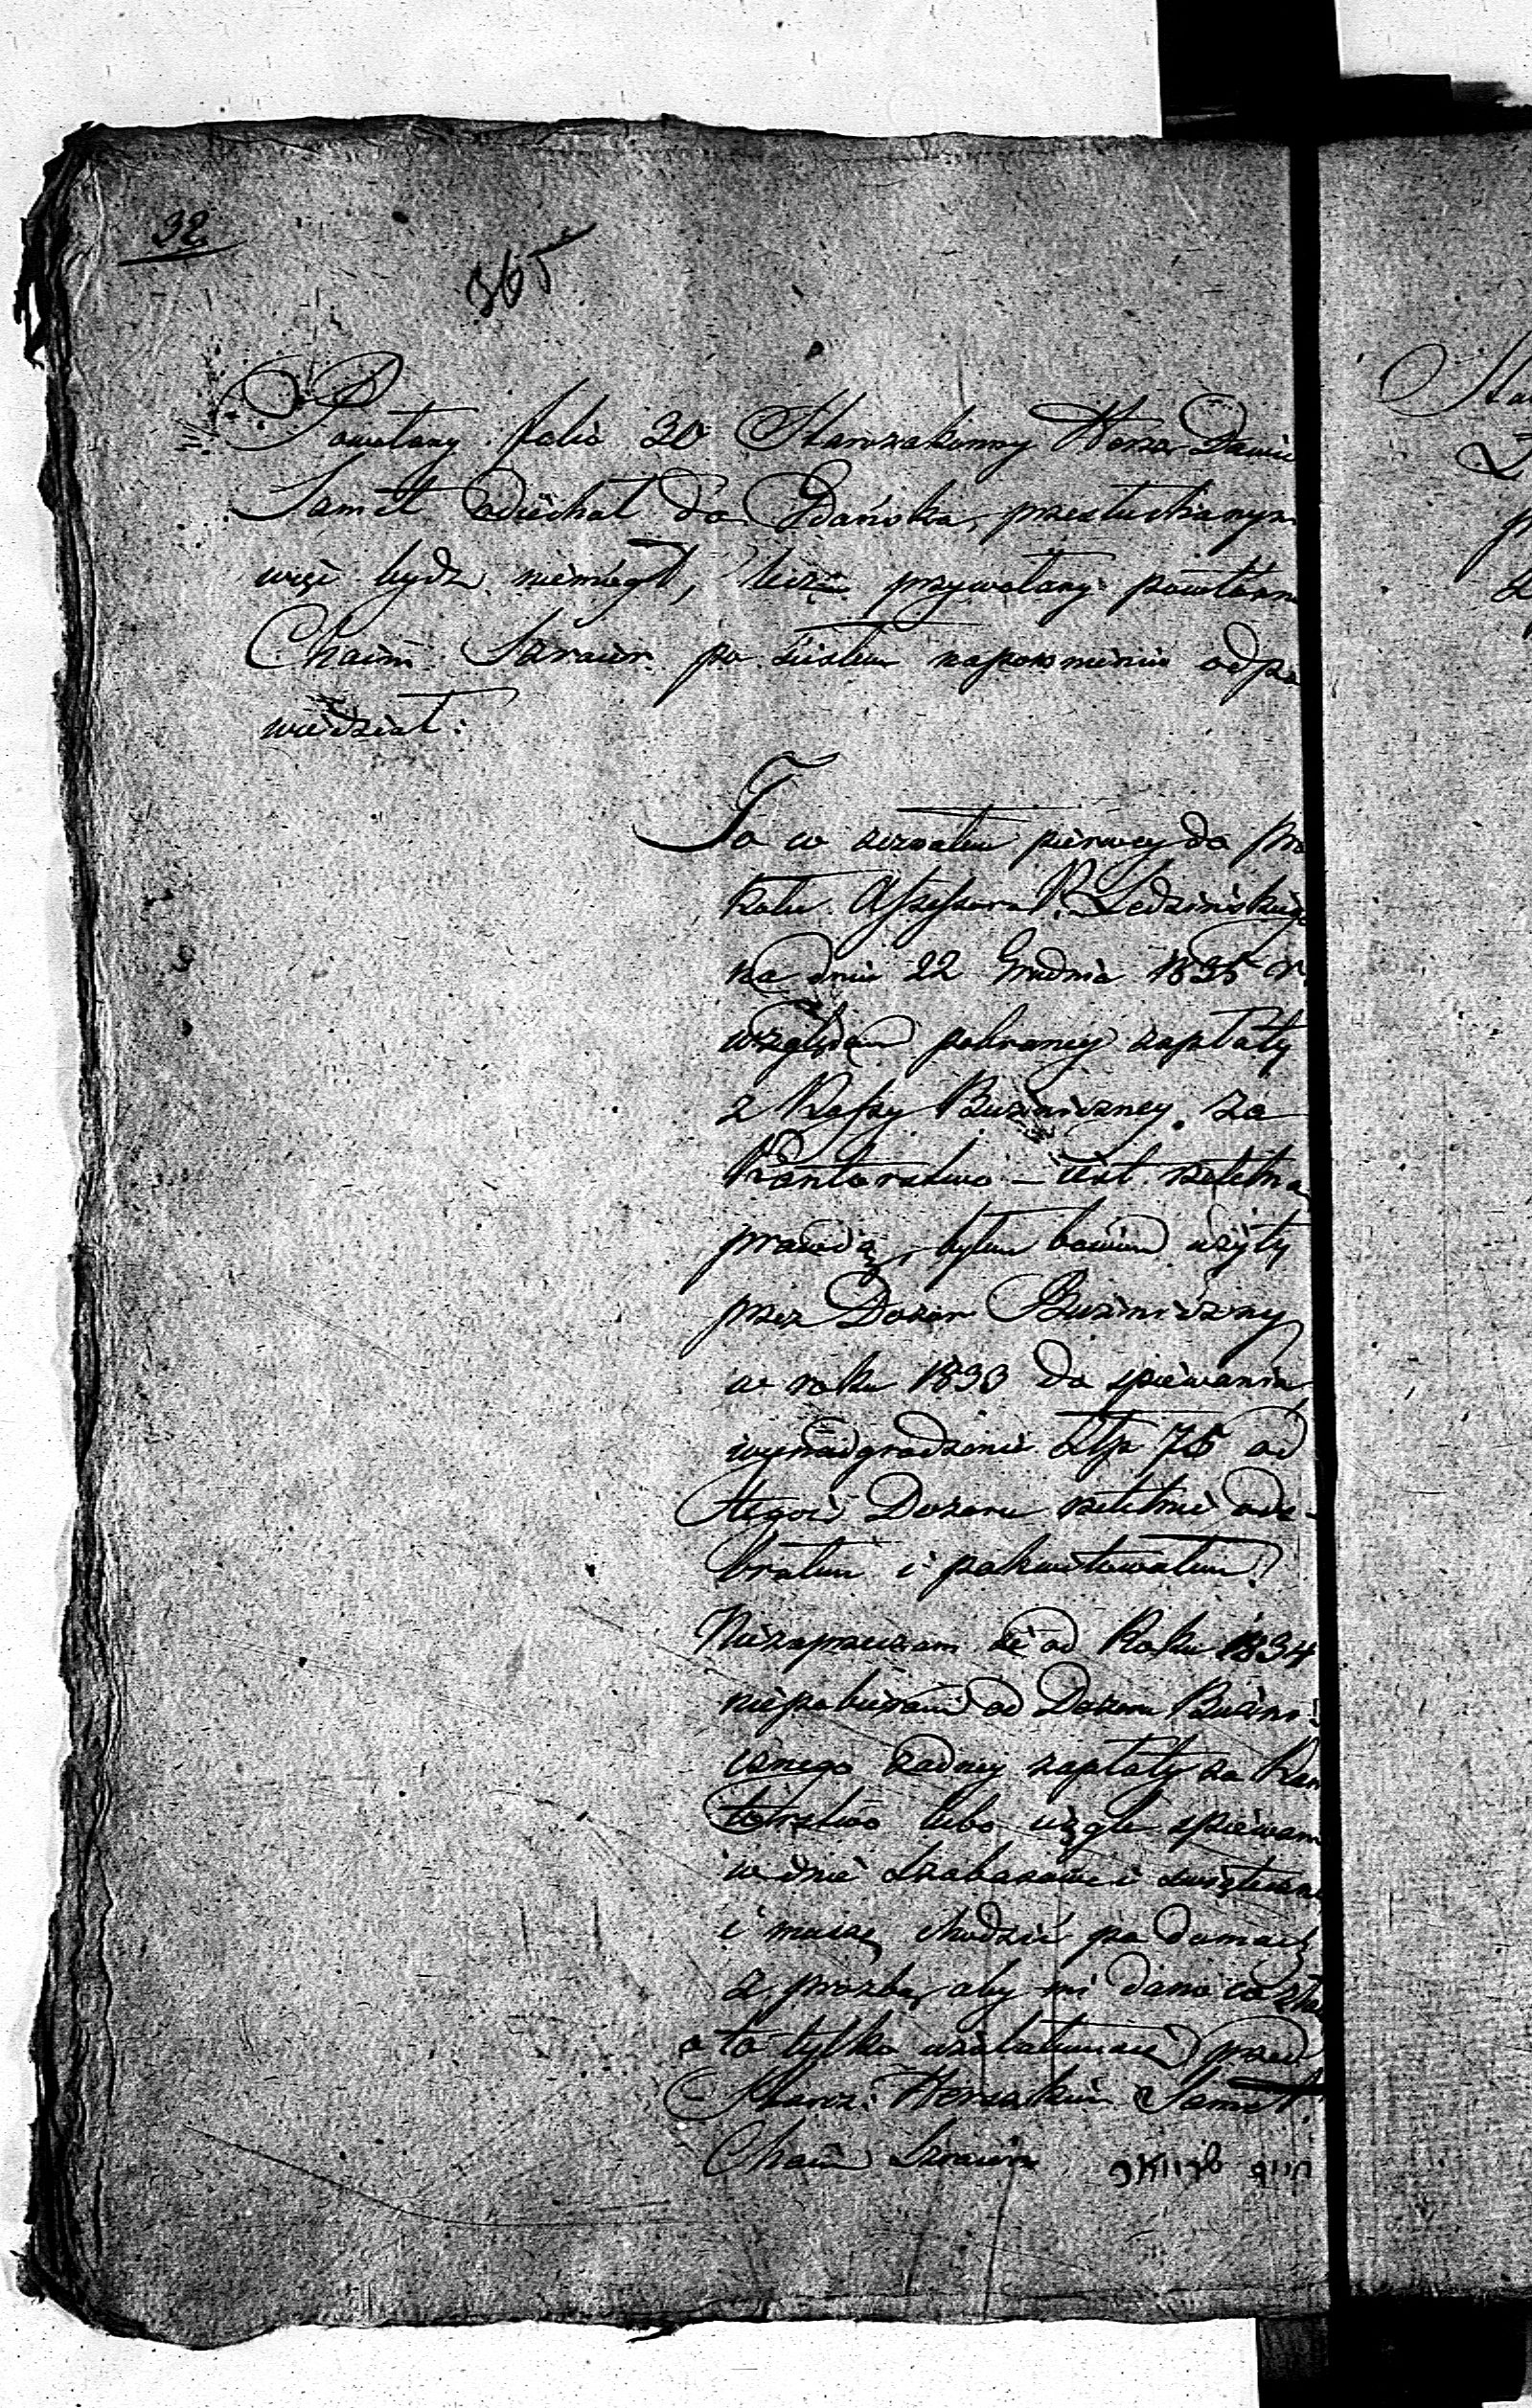 32
365
Powołany folio 30 Starozakonny Herszk Dawid
Samet odiechał do Gdańska, przesłuchanym
więc bydź niemógł, lecz przywołany powtórn
Chaim Szraier po ścisłem napomnieniu odpo
wiedział:
To co zeznałem pierwey do Pro
kołu Assessora P. Ledzińskiego
na dniu 22 Grudnia 1835 r.
względem pobraney zapłaty
z Kassy Bużniczney za
Kantorstwo – iest rzetelną
prawdą, byłem bowiem użyty
przez Dozór Bużniczny
w roku 1833 do spiewania,
wynadgrodzenie Złp 75 od
tegoż Dozoru rzetelnie ode-
brałem i pokwitowałem.
Niezaprzeczam że od Roku 1834
niepobieram od Dozoru Bużni-
cznego żadney zapłaty za Kan
torstwo lubo ciągle spiewam
w dnie szabasowe i świąteczne
i muszę chodzić po domach
z prozbą, aby mi dano co łaska
o to tylko użalałem się przed
Staroz: Herszkiem Samet.
Chaim Szraier חיים שרייאר